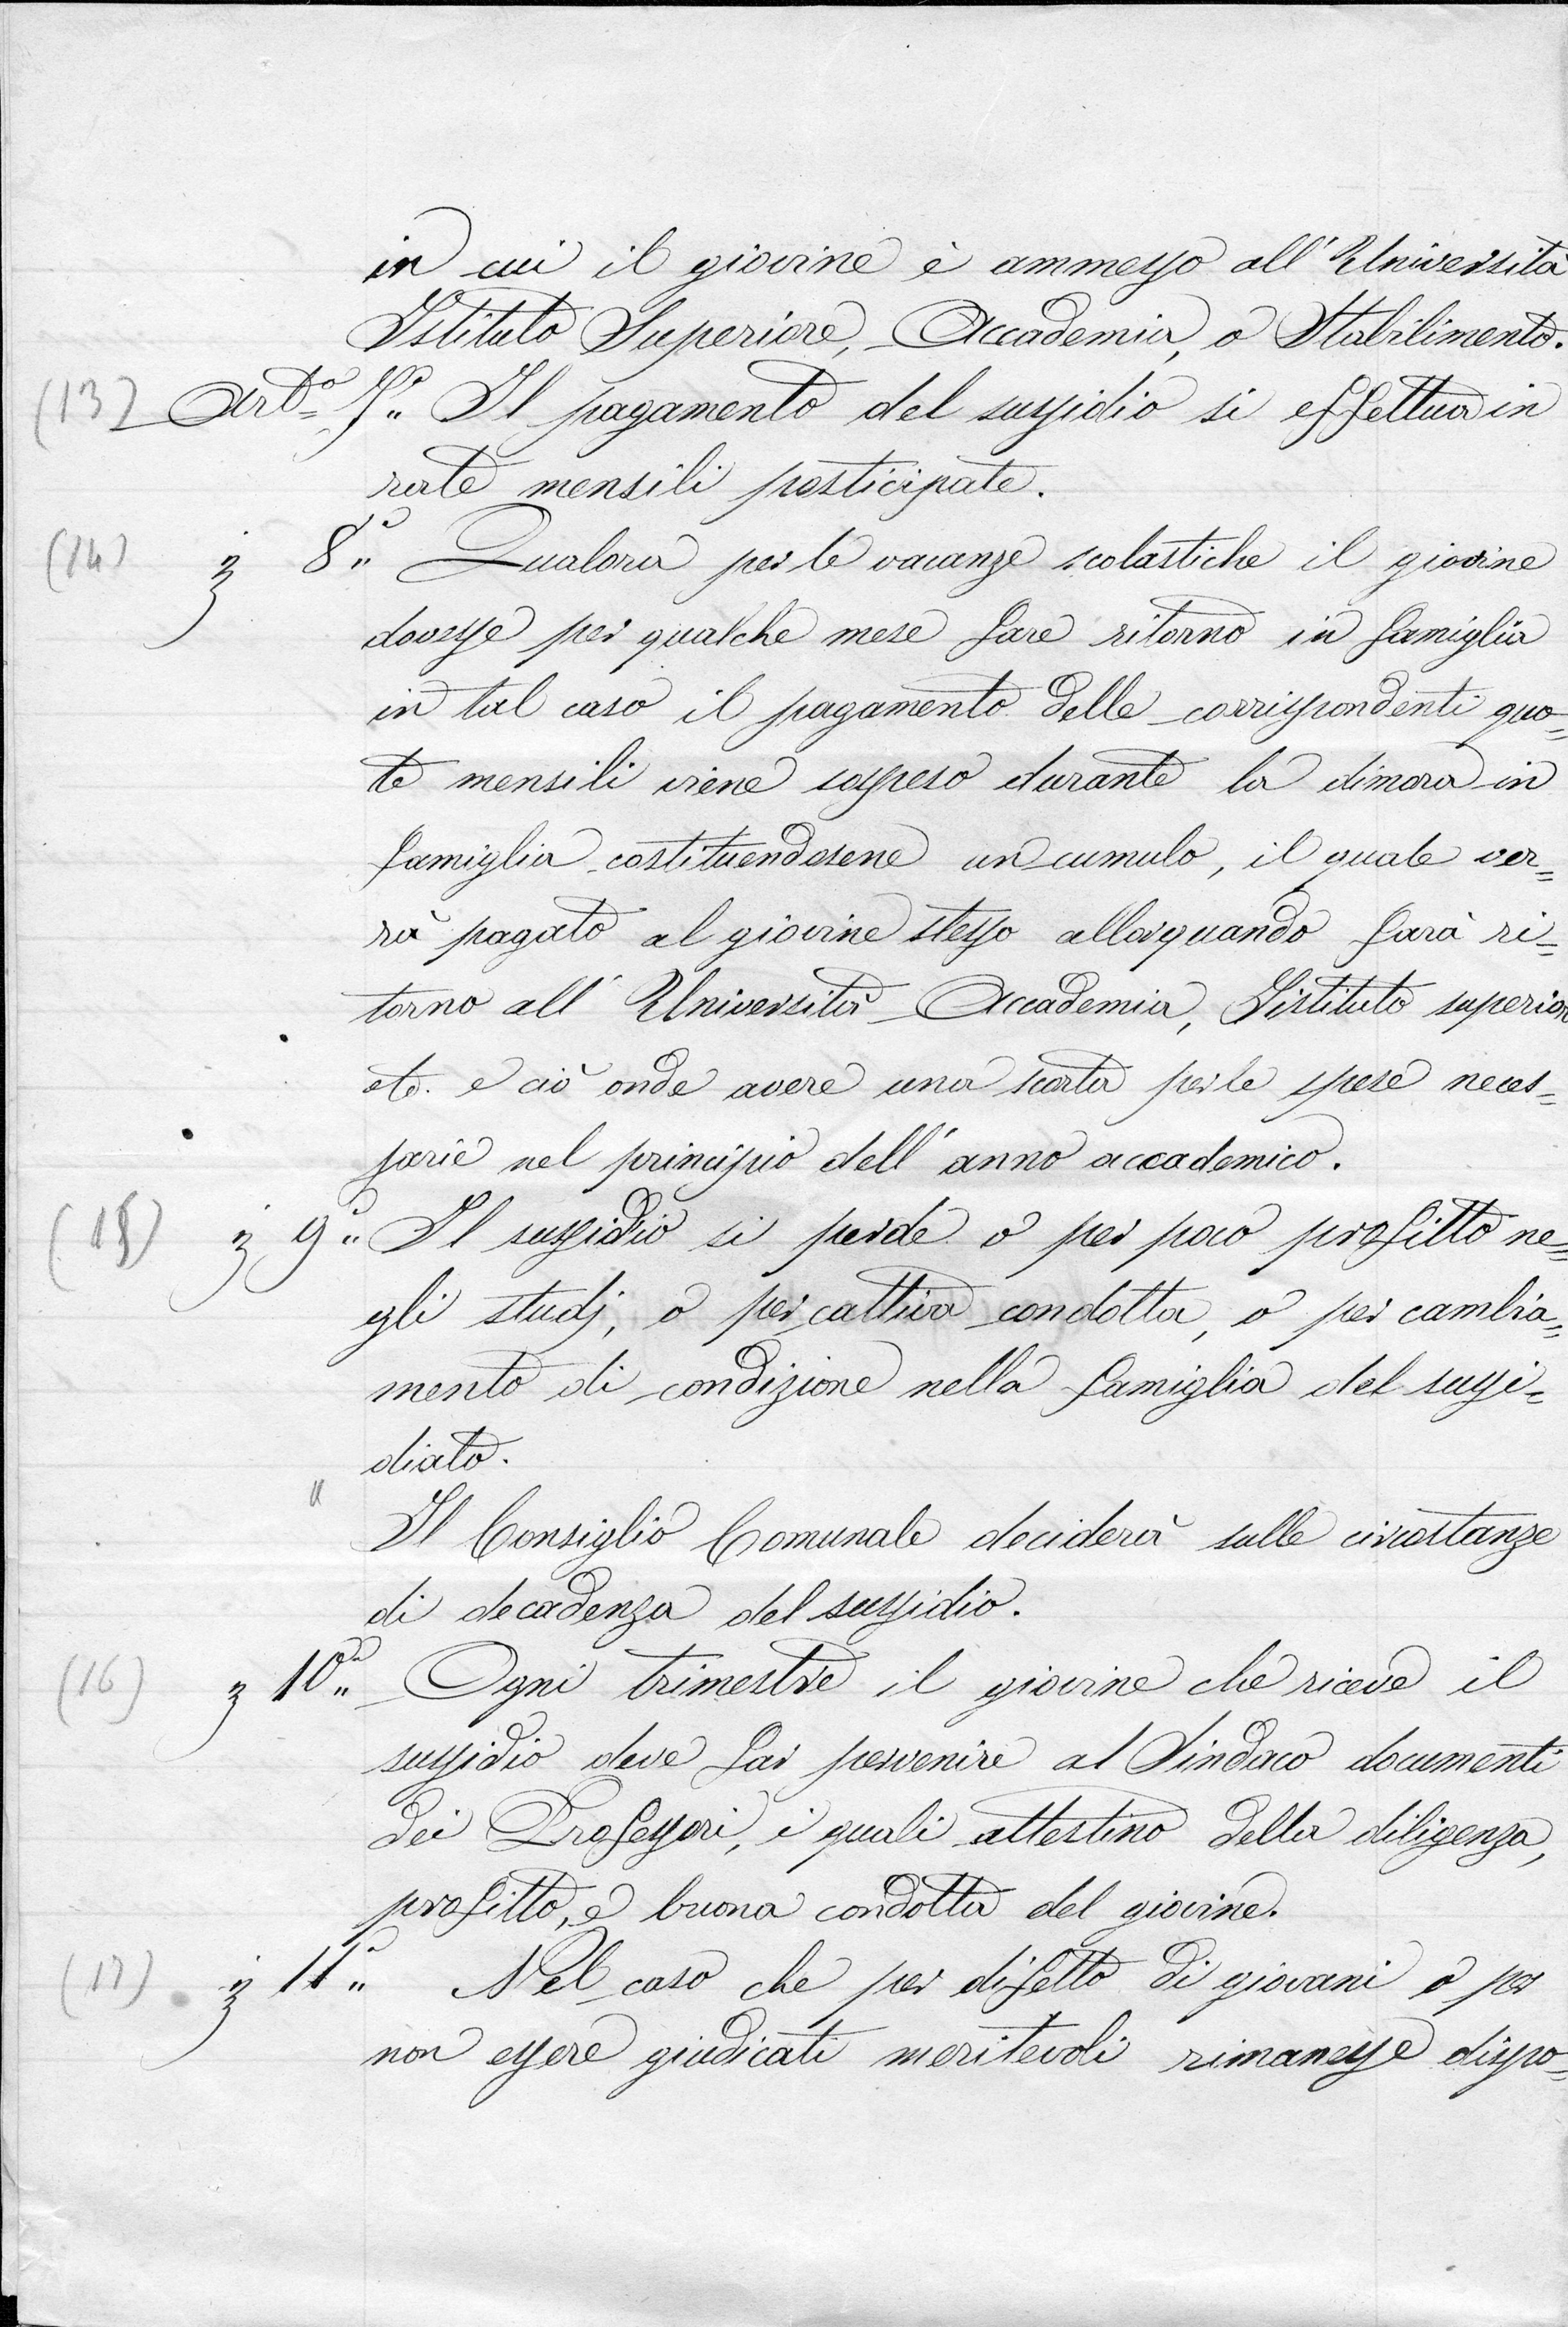 in cui il giovine è ammesso all'Università
Istituto Superiore, Accademia, o Stabilimento.
(13) Art.o 7.o Il pagamento del sussidio si effettua in
rate mensili posticipate.
(14) " 8.o Qualora per le vacanze scolastiche il giovine
dovesse per qualche mese fare ritorno in famiglia
in tal caso il pagamento delle corrispondenti quo=
te mensili viene sospeso durante la dimora in
famiglia costituendosene un cumulo, il quale ver=
rà pagato al giovine stesso allorquando farà ri=
torno all'Università Accademia, Istituto superior
etc. e ciò onde avere una scorta per le spese neces=
sarie nel principio dell'anno accademico.
(15) " 9.o Il sussidio si perde o per poco profitto ne=
gli studj, o per cattiva condotta, o per cambia=
mento di condizione nella famiglia del sussi=
diato.
" Il Consiglio Comunale deciderà sulle circostanze
di decadenza del sussidio.
(16) " 10.o Ogni trimestre il giovine che riceve il
sussidio deve far pervenire al Sindaco documenti
dei Professori, i quali attestino della diligenza,
profitto, e buona condotta del giovine.
(17) " 11.o Nel caso che per difetto di giovani o per
non essere giudicati meritevoli rimanesse dispo=